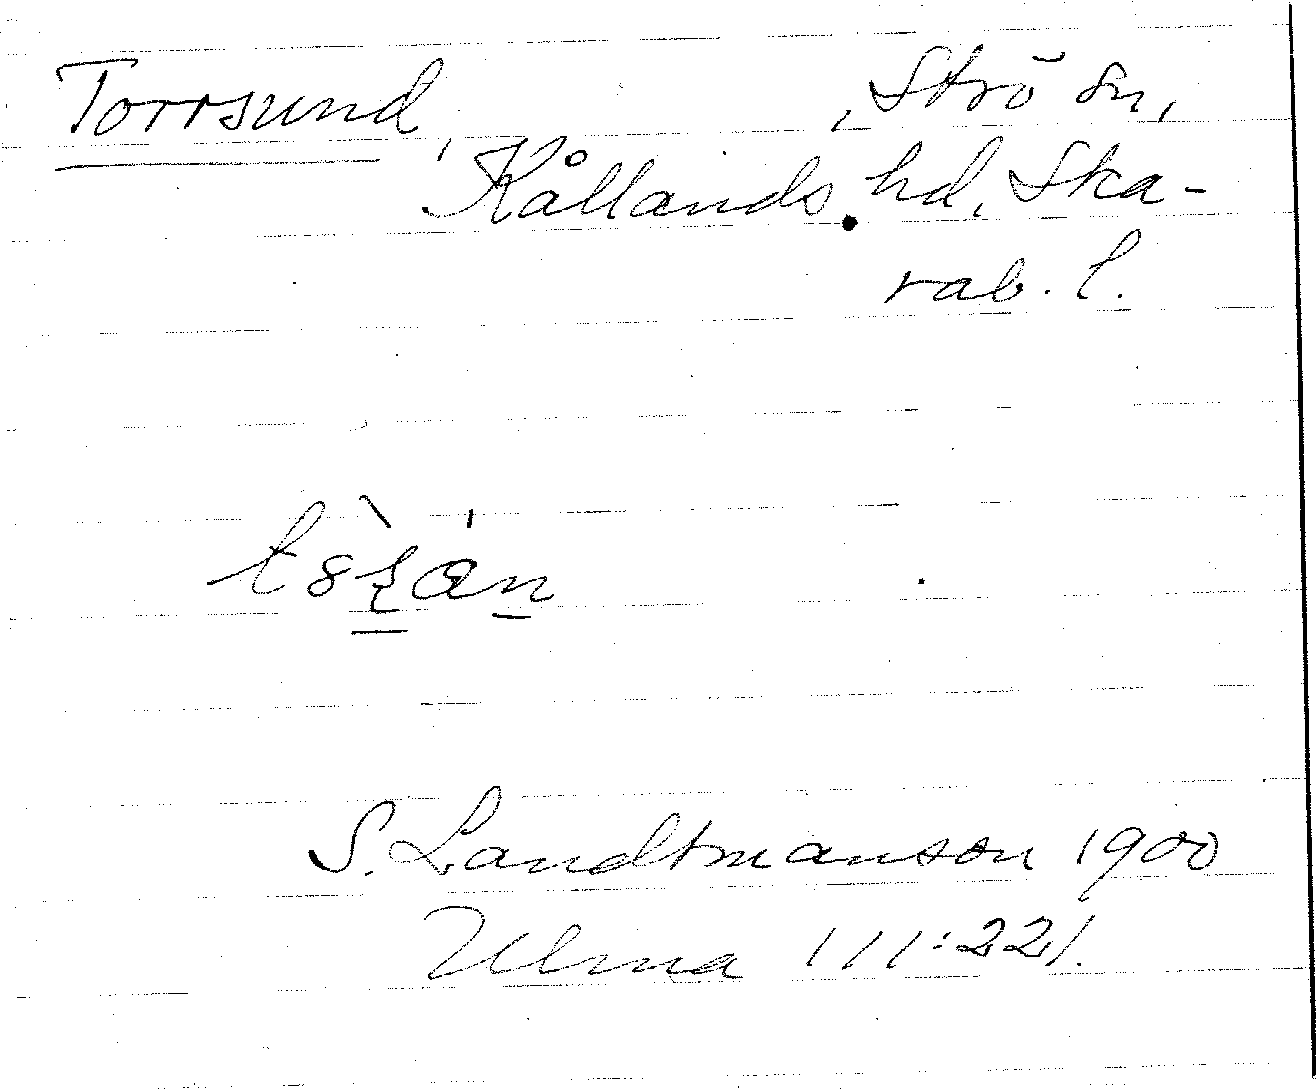 Torrsund, Strö sn,
Kållands hd, Ska-
rab. l.
S. Landtmanson 1900
Ulma 111:221.